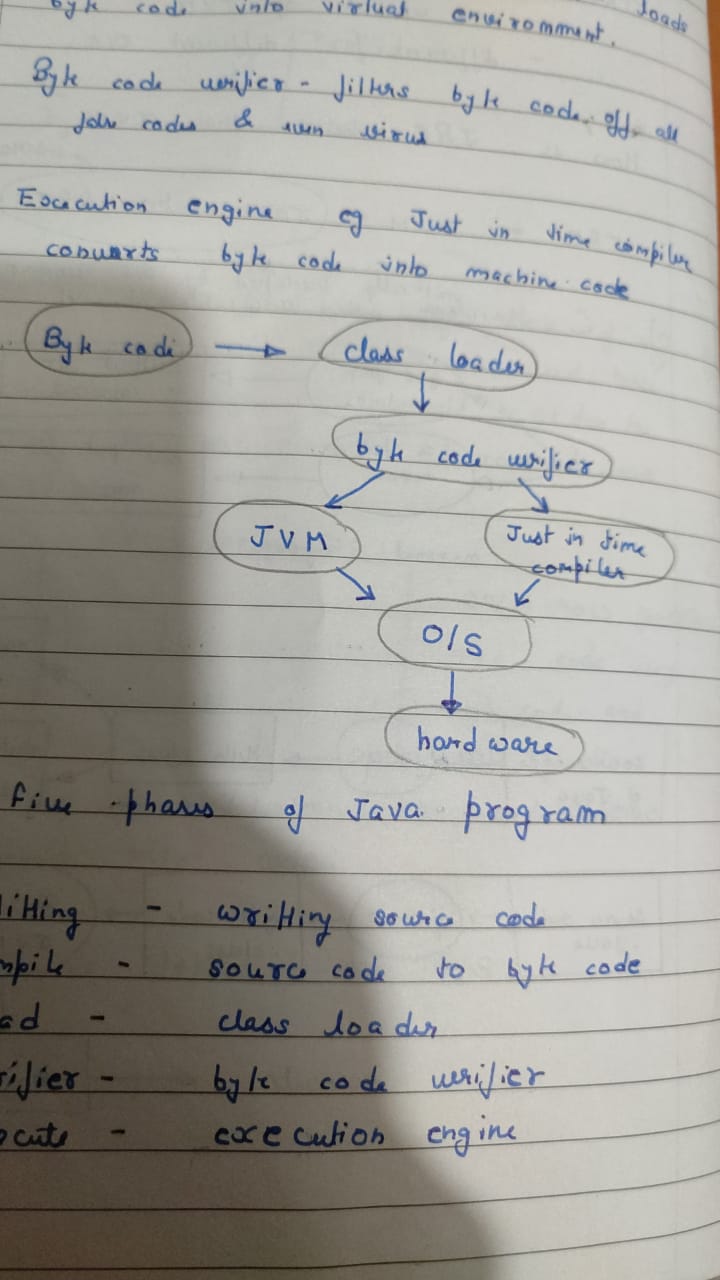 loads
byte code into virtual environment.
Byte code verifier - filters byte code off all
codes & even virus
Execution engine eg Just in time compiler
converts byte code into machine code
Byte code
class loader
byte code verifier
JVM
Just in time
compiler
O/S
hardware
five phases of Java program
iting - writting source code
mpile - source code to byte code
ad - class loader
rifier - byte code verifier
ecute - execution engine